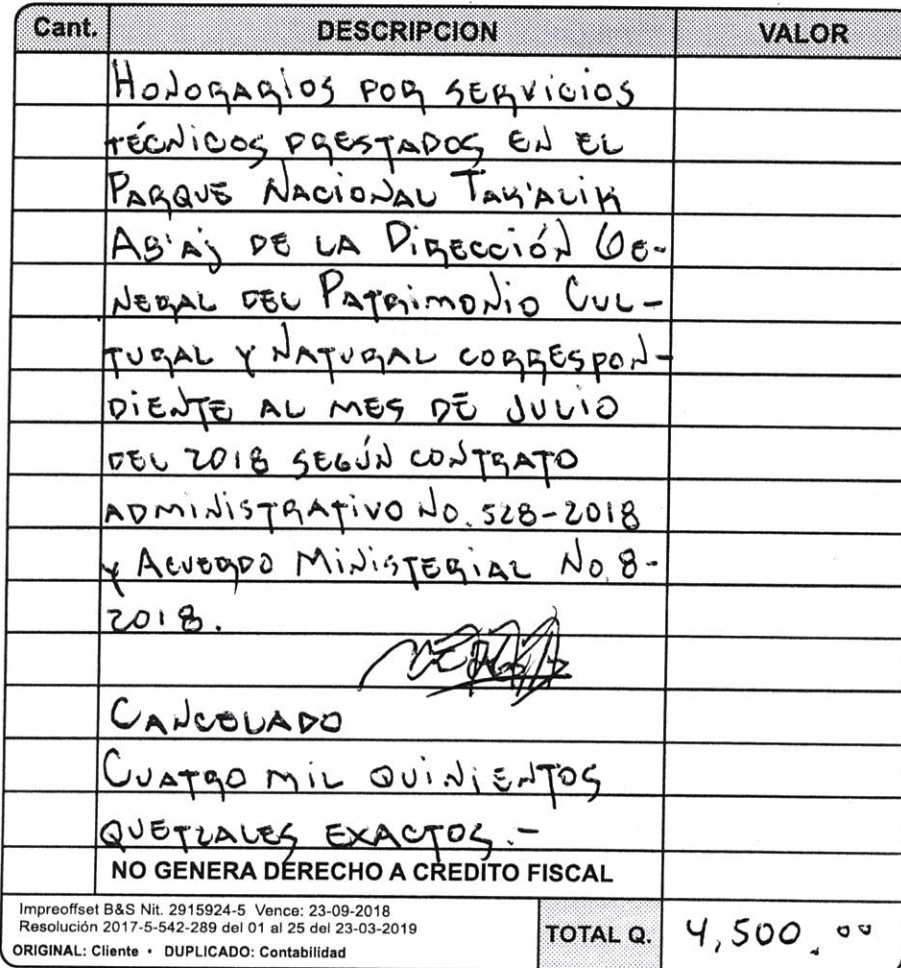 Cant. DESCRIPCION VALOR
HONORARIOS POR SERVICIOS
TÉCNICOS PRESTADOS EN EL
PARQUE NACIONAL TAK'ALIK
AB'AJ DE LA DIRECCIÓN GE-
NERAL DEL PATRIMONIO CUL-
TURAL Y NATURAL CORRESPON-
DIENTE AL MES DE JULIO
DEL 2018 SEGÚN CONTRATO
ADMINISTRATIVO NO. 528-2018
Y ACUERDO MINISTERIAL No. 8-
2018.
CANCELADO
CUATRO MIL QUINIENTOS
QUETZALES EXACTOS.-
NO GENERA DERECHO A CREDITO FISCAL
Impreoffset B&S Nit. 2915924-5 Vence: 23-09-2018
Resolución 2017-5-542-289 del 01 al 25 del 23-03-2019
ORIGINAL: Cliente • DUPLICADO: Contabilidad
TOTAL Q. 4,500.00